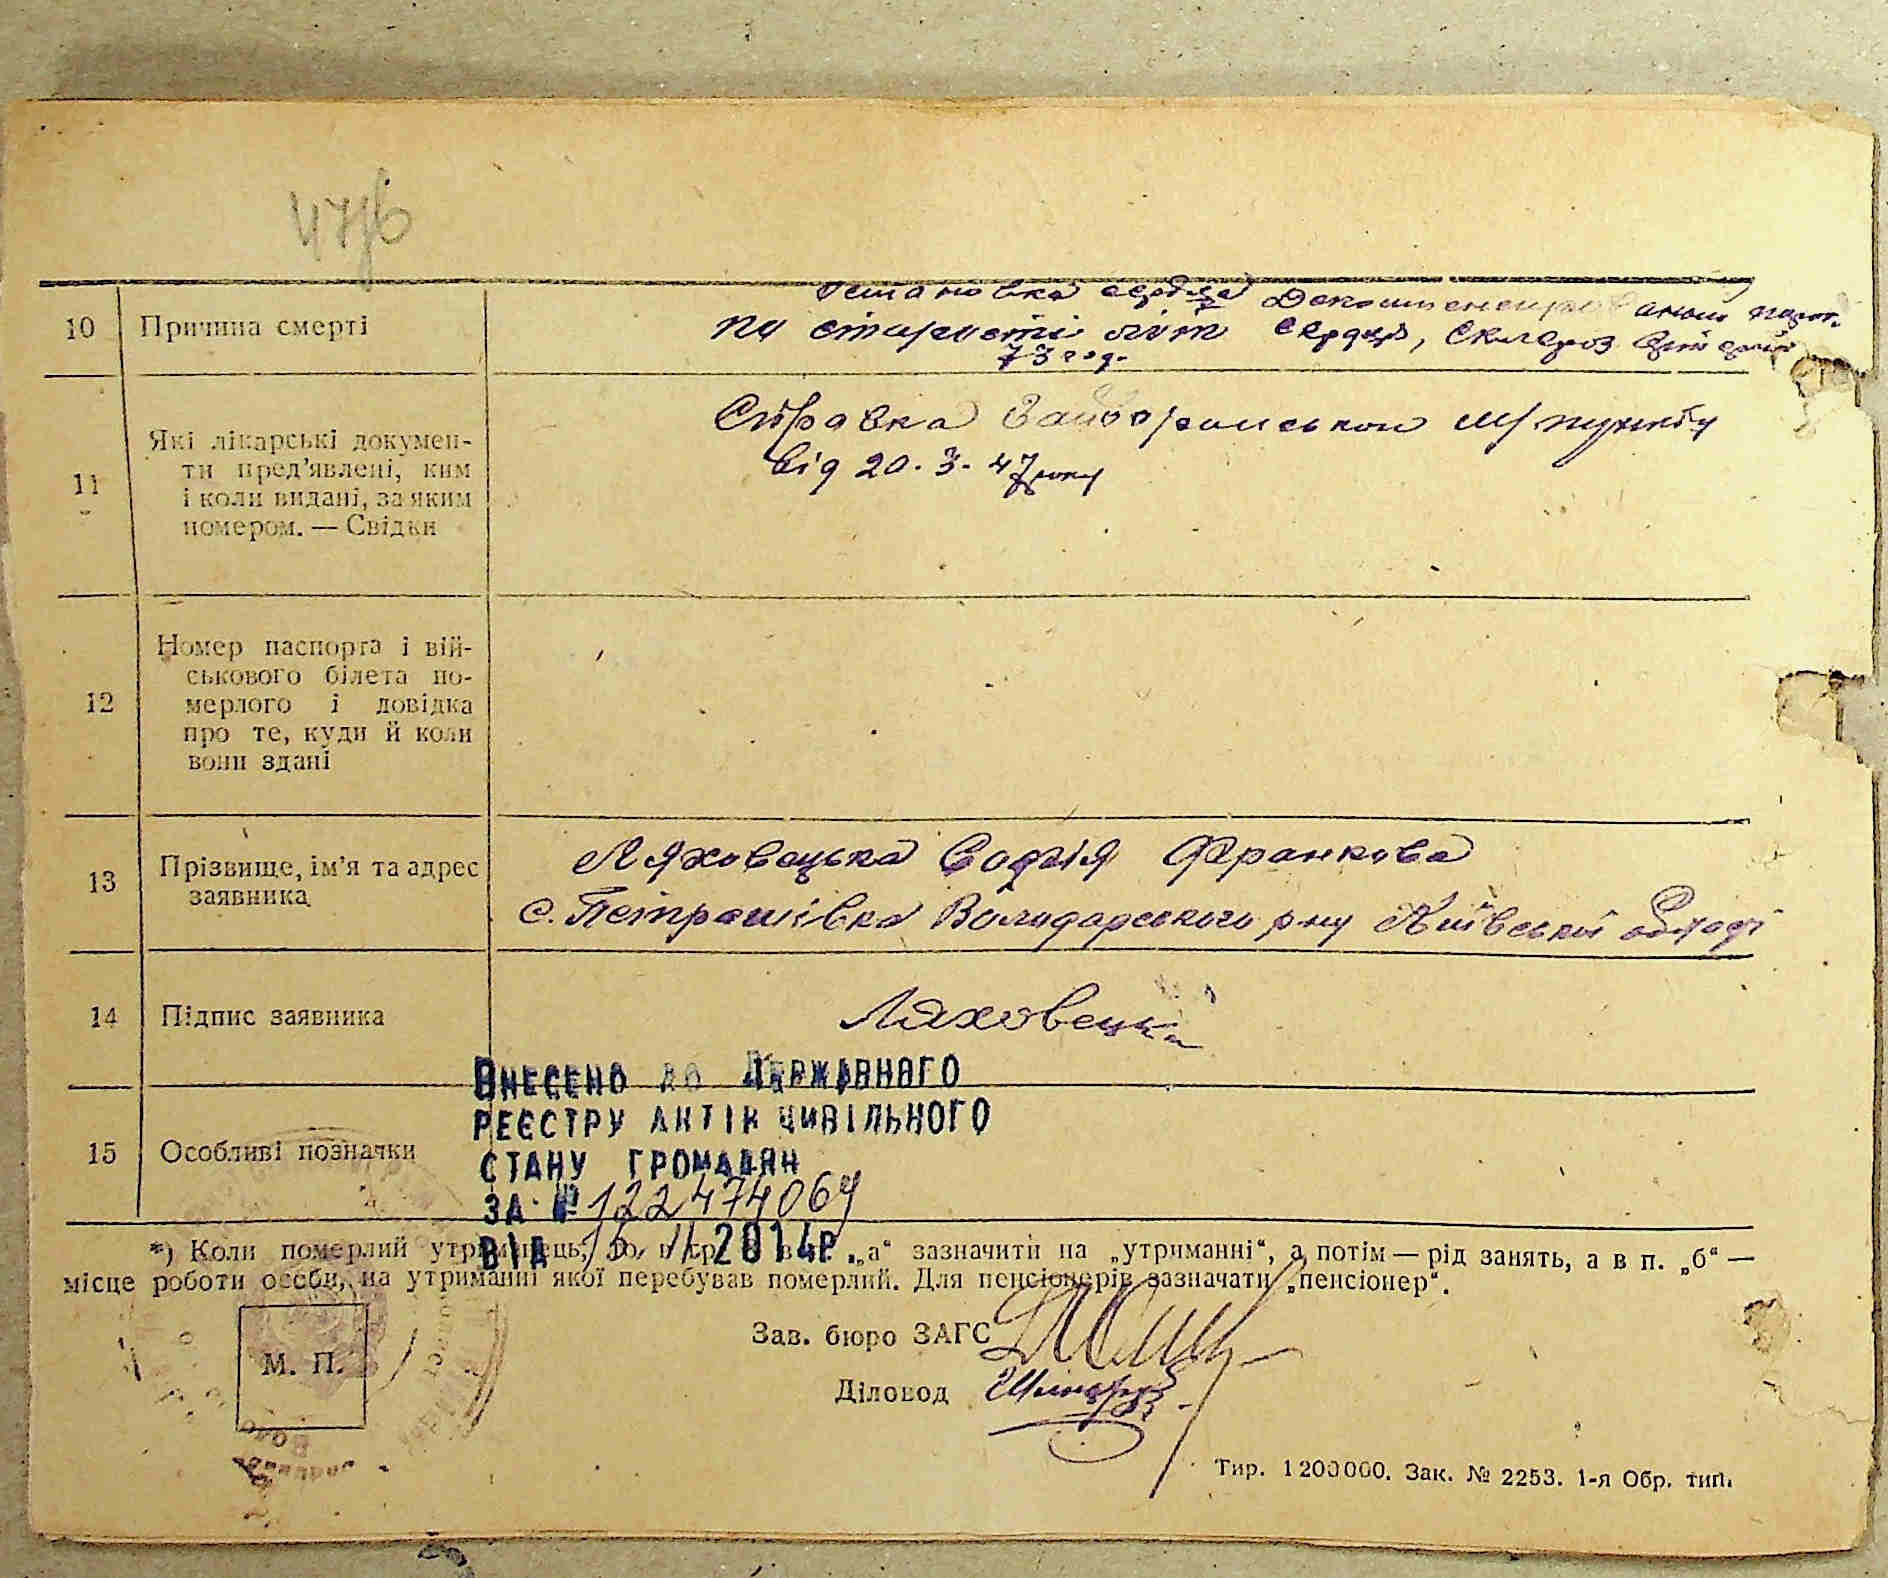 47/б
10 Причина смерті
Остановка сердца Декомпенсирован
по старості літ сердця, склероз
73 год.
11 Які лікарські докумен-
ти пред'явлені, ким
і коли видані, за яким
номером. — Свідки
Справка м/пункту
від 20.3.47 року
12 Номер паспорта і вій-
ськового білета по-
мерлого і довідка
про те, куди й коли
вони здані
13 Прізвище, ім'я та адрес
заявника
Ляховецька Софія Франкова
с. Петрашівка Володарського р-ну Київської області
14 Підпис заявника
Ляховецька
15 Особливі позначки
ВНЕСЕНО ДО ДЕРЖАВНОГО
РЕЄСТРУ АКТІВ ЦИВІЛЬНОГО
СТАНУ ГРОМАДЯН
ЗА № 122474064
ВІД 15.11.2014Р.
*) Коли померлий утриманець, то в гр. 8 в п. „а“ зазначити на „утриманні“, а потім — рід занять, а в п. „б“ —
місце роботи особи, на утриманні якої перебував померлий. Для пенсіонерів зазначати „пенсіонер“.
Зав. бюро ЗАГС
М. П.
Діловод
Тир. 1200000. Зак. № 2253. 1-я Обр. тип.